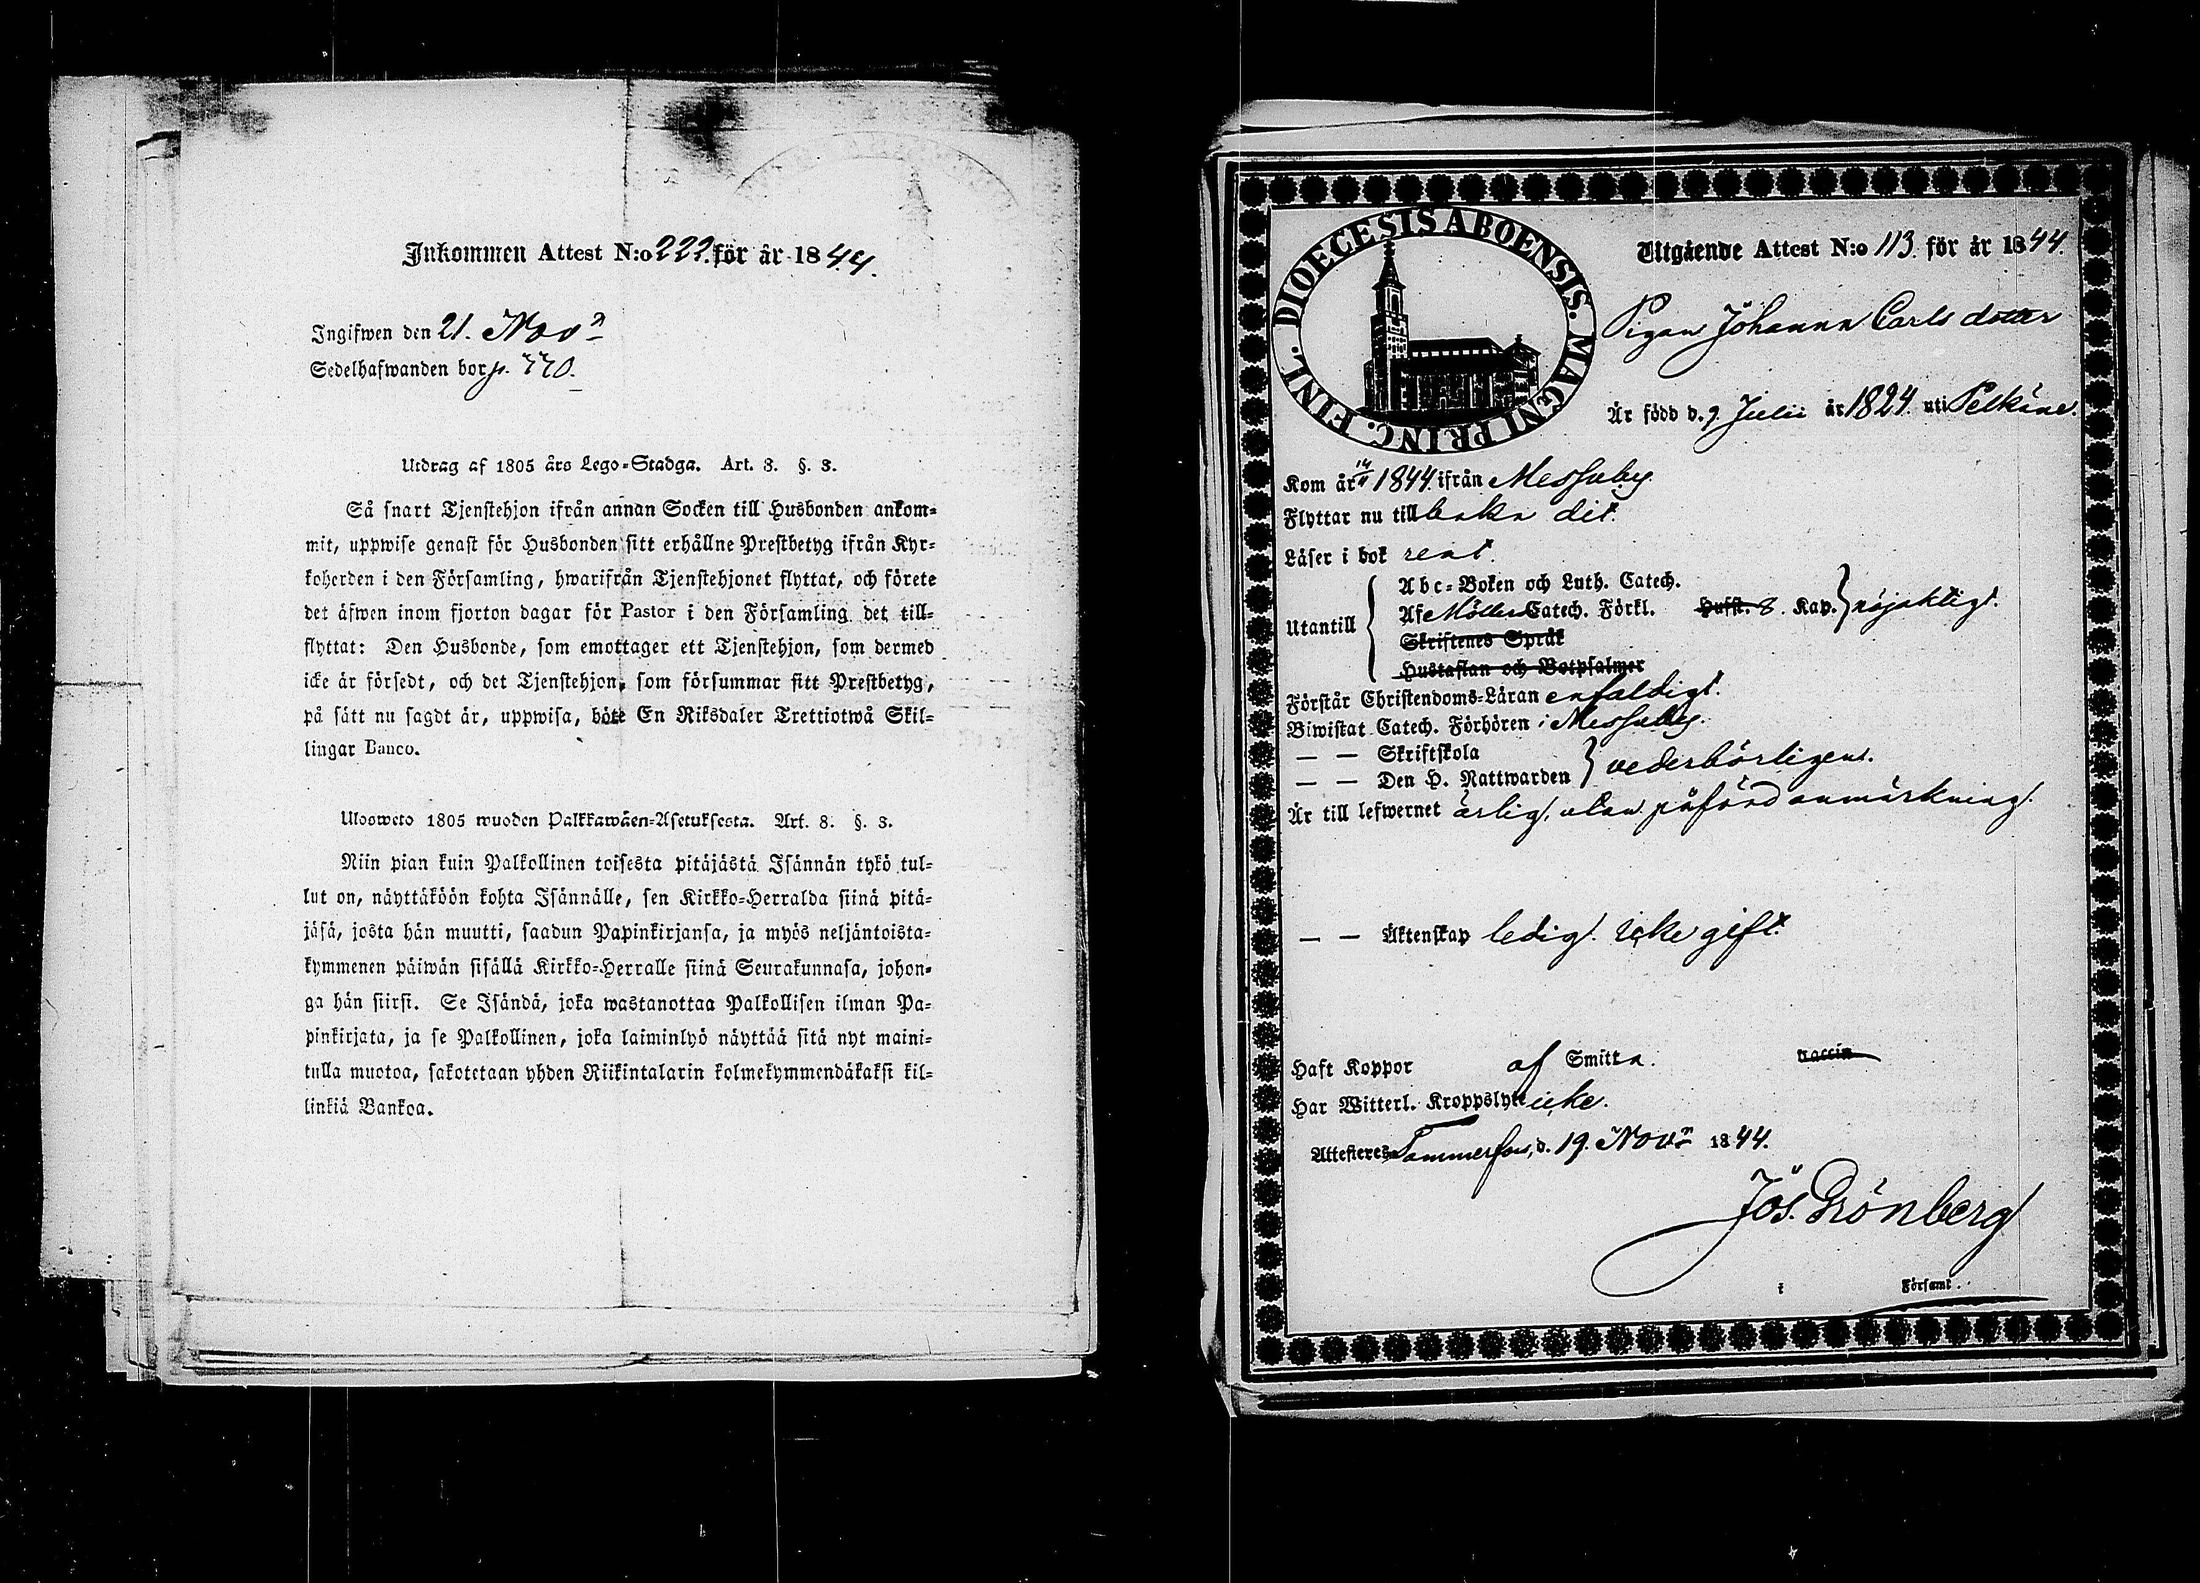 Inkommen Attest N:o 222. för år 1844.
Ingifwen den 21. Nov:r
Sedelhafwanden bor p. 770.
Utdrag af 1805 års Lego-Stadga. Art. 8. §. 3.
Så snart Tjenstehjon ifrån annan Socken till Husbonden ankom-
mit, uppwise genast för Husbonden sitt erhållne Prestbetyg ifrån Kyr-
koherden i den Församling, hwarifrån Tjenstehjonet flyttat, och förete
det äfwen inom fjorton dagar för Pastor i den Församling det till-
flyttat: Den Husbonde, som emottager ett Tjenstehjon, som dermed
icke är försedt, och det Tjenstehjon, som försummar sitt Prestbetyg,
på sätt nu sagdt är, uppwisa, böte En Riksdaler Trettiotwå Skil-
lingar Banco.
Ulosweto 1805 wuoden Palkkawäen-Asetuksesta. Art. 8. §. 3.
Niin pian kuin Palkollinen toisesta pitäjästä Isännän tykö tul-
lut on, näyttäköön kohta Isännälle, sen Kirkko-Herralda siinä pitä-
jäsä, josta hän muutti, saadun Papinkirjansa, ja myös neljäntoista-
kymmenen päiwän sisällä Kirkko-Herralle siinä Seurakunnasa, johon-
ga hän siirsi. Se Isändä, joka wastanottaa Palkollisen ilman Pa-
pinkirjata, ja se Palkollinen, joka laiminlyö näyttää sitä nyt maini-
tulla muotoa, sakotetaan yhden Riikintalarin kolmekymmendäkaksi kil-
linkiä Bankoa.
DIOECESIS ABOENSIS. MAGNI PRINC. FINL.
Utgående Attest N:o 113. för år 1844.
Pigan Johanna Carls dotter
Är född d. 9 Julii år 1824. uti Pelkäne.
Kom år 14/11 1844. ifrån Messuby
Flyttar nu till baka dit.
Läser i bok rent.
Utantill
Abc-Boken och Luth. Catech.
Af Möllers Catech. Förkl. Husst. 8. Kap. nöjaktigt.
Skriftenes Språk
Hustaflan och Botpsalmer
Förstår Christendoms-Läran enfaldigt.
Biwistat Catech. Förhören i Messuby.
— — Skriftskola
— — Den H. Nattwarden vederbörligens.
Är till lefwernet ärlig, utan påförd anmärkning.
— — Äktenskap ledig. icke gift.
Haft Koppor af Smitta. vaccin
Har Witterl. Kroppslyte icke.
Attesteres Tammerfors, d. 19. Nov:r 1844.
Jos. Grönberg
i Församl.